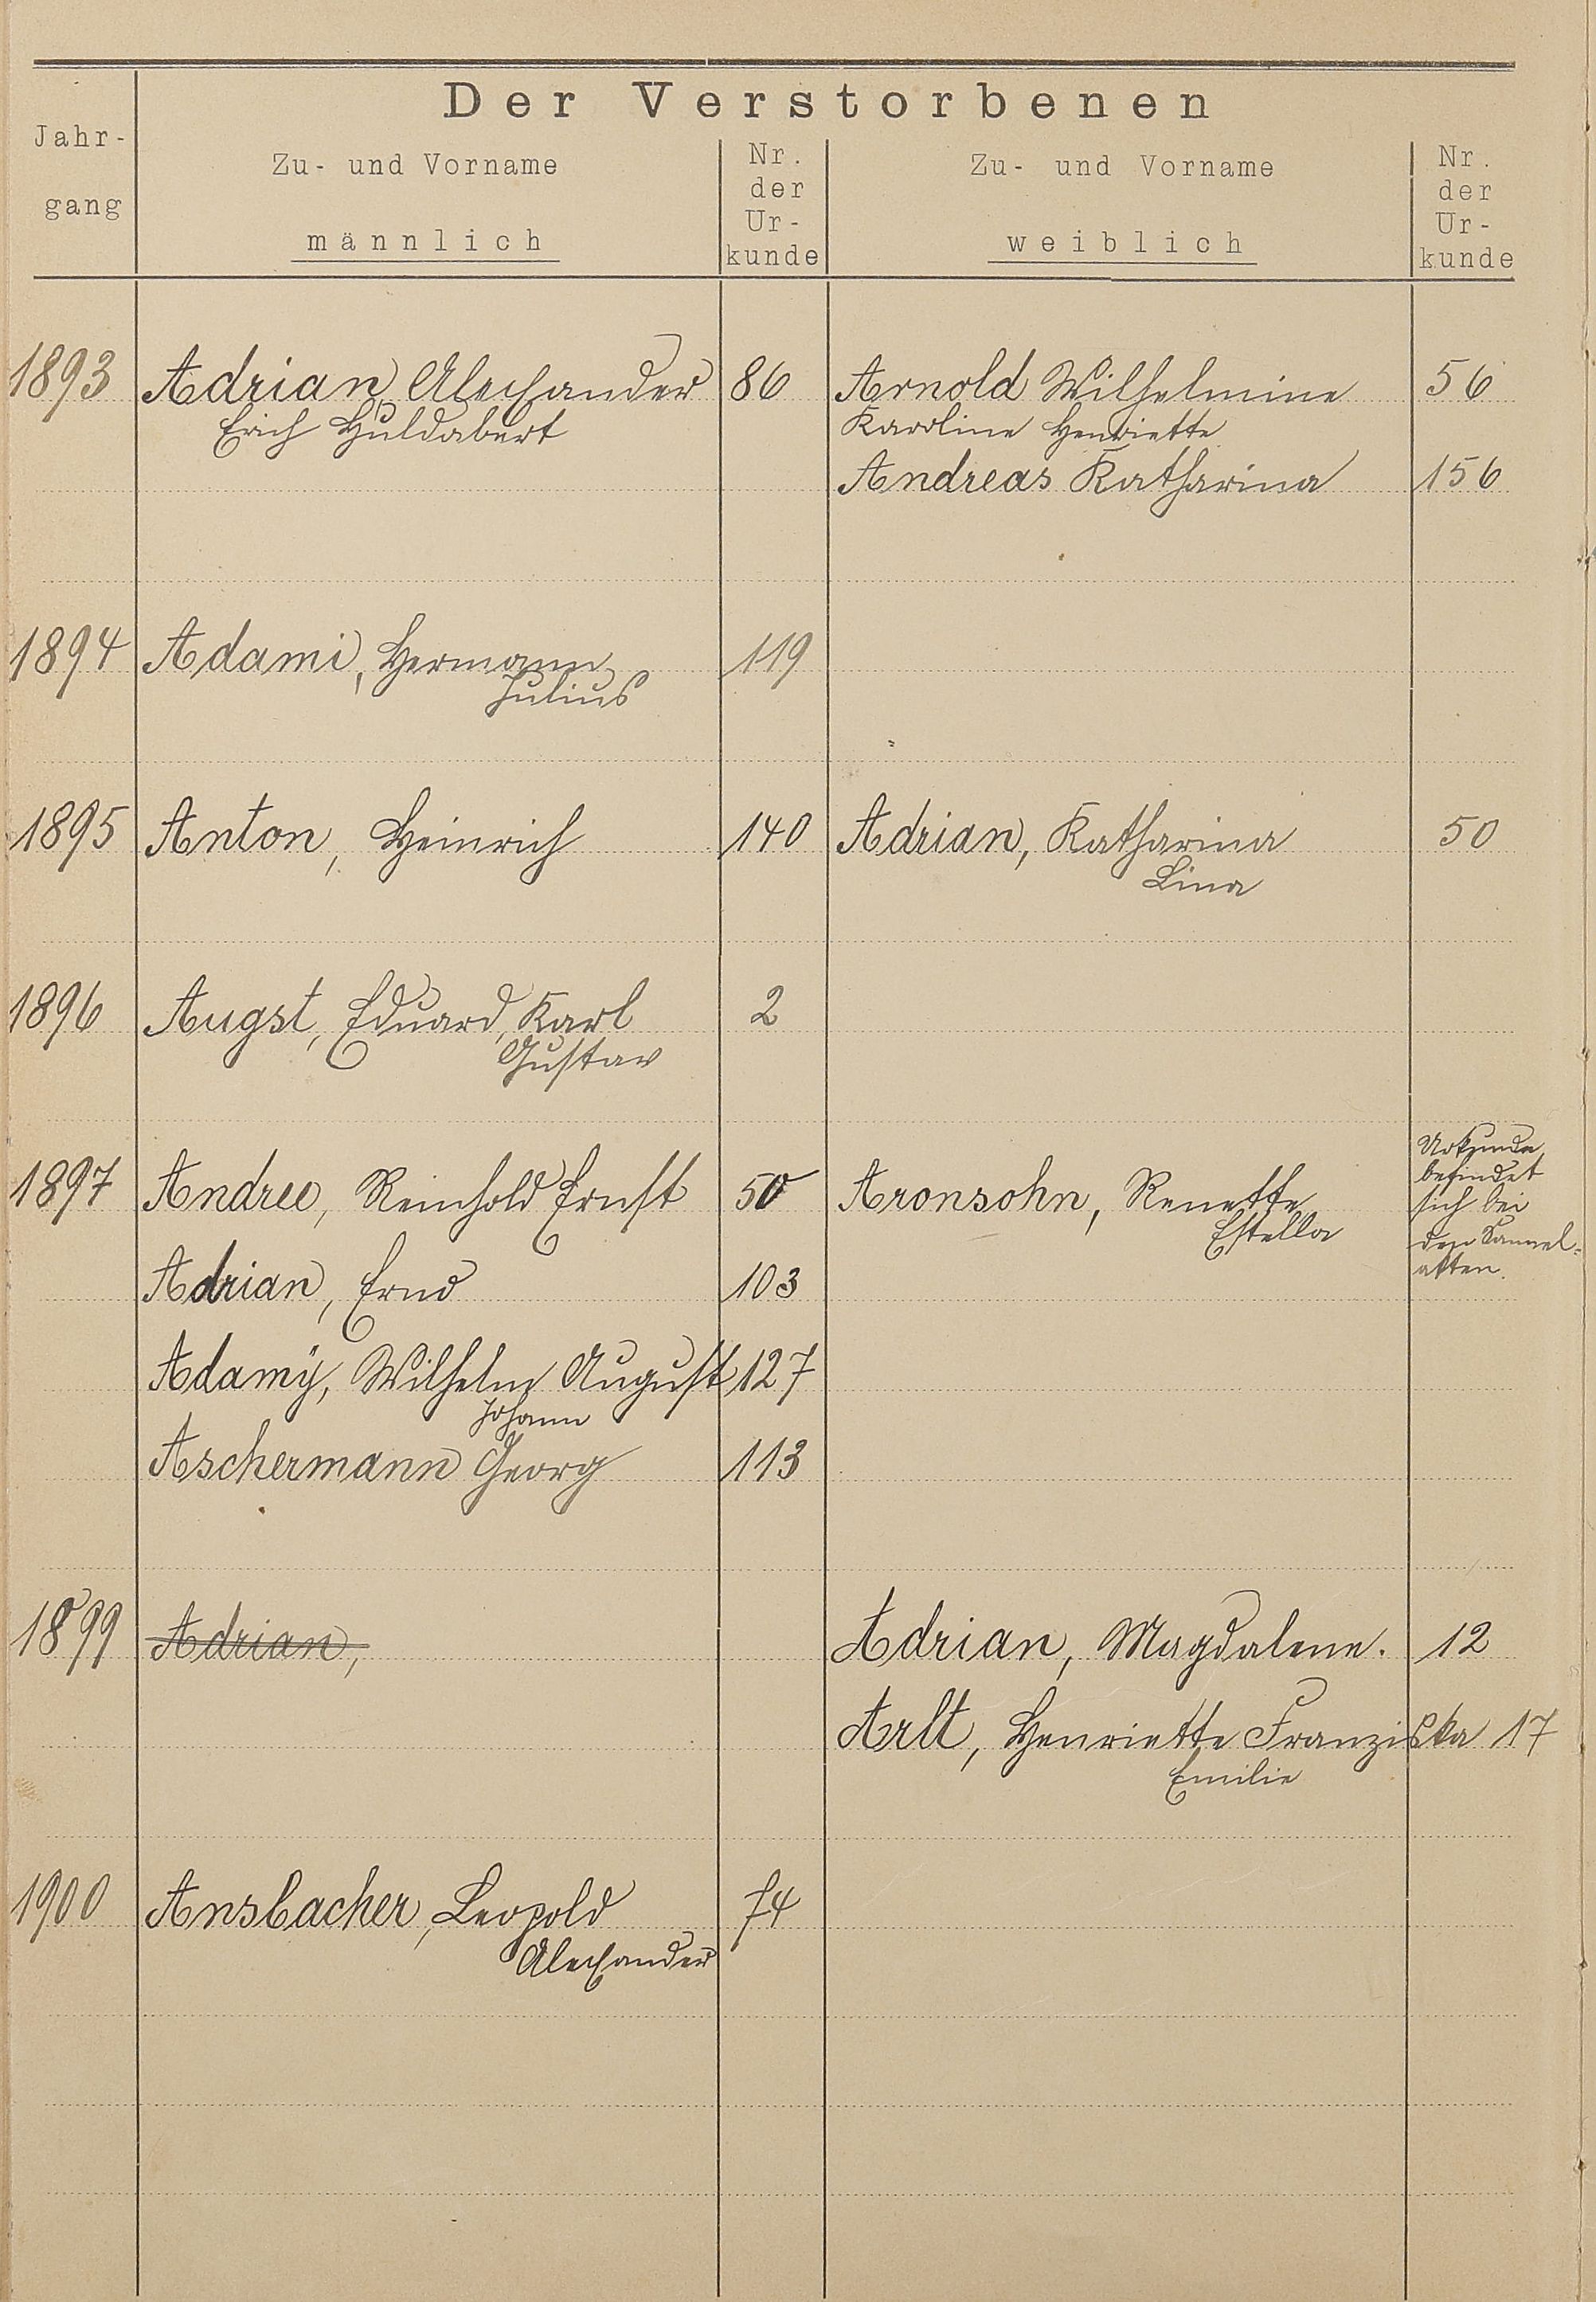 Der Verstorbenen
Jahr-
gang
Zu- und Vorname
männlich
Nr.
der
Ur-
kunde
Zu- und Vorname
weiblich
Nr.
der
Ur-
kunde
1893 Adrian, Alexander 86 Arnold Wilhelmine 56
Erich Huldabert Karoline Henriette
Andreas Katharina 156
1894 Adami, Hermann 119
Julius
1895 Anton, Heinrich 140 Adrian, Katharina 50
Lina
1896 Augst, Eduard, Karl 2
Gustav
1897 Andree, Reinhold Ernst 50 Aronsohn, Renette Urkunde
Estella befindet
sich bei
den Sammel-
akten.
Adrian, Erno 103
Adamÿ, Wilhelm August 127
Johann
Aschermann Georg 113
1899 Adrian, Adrian, Magdalene. 12
Arlt, Henriette Franziska 17
Emilie
1900 Ansbacher, Leopold 74
Alexander